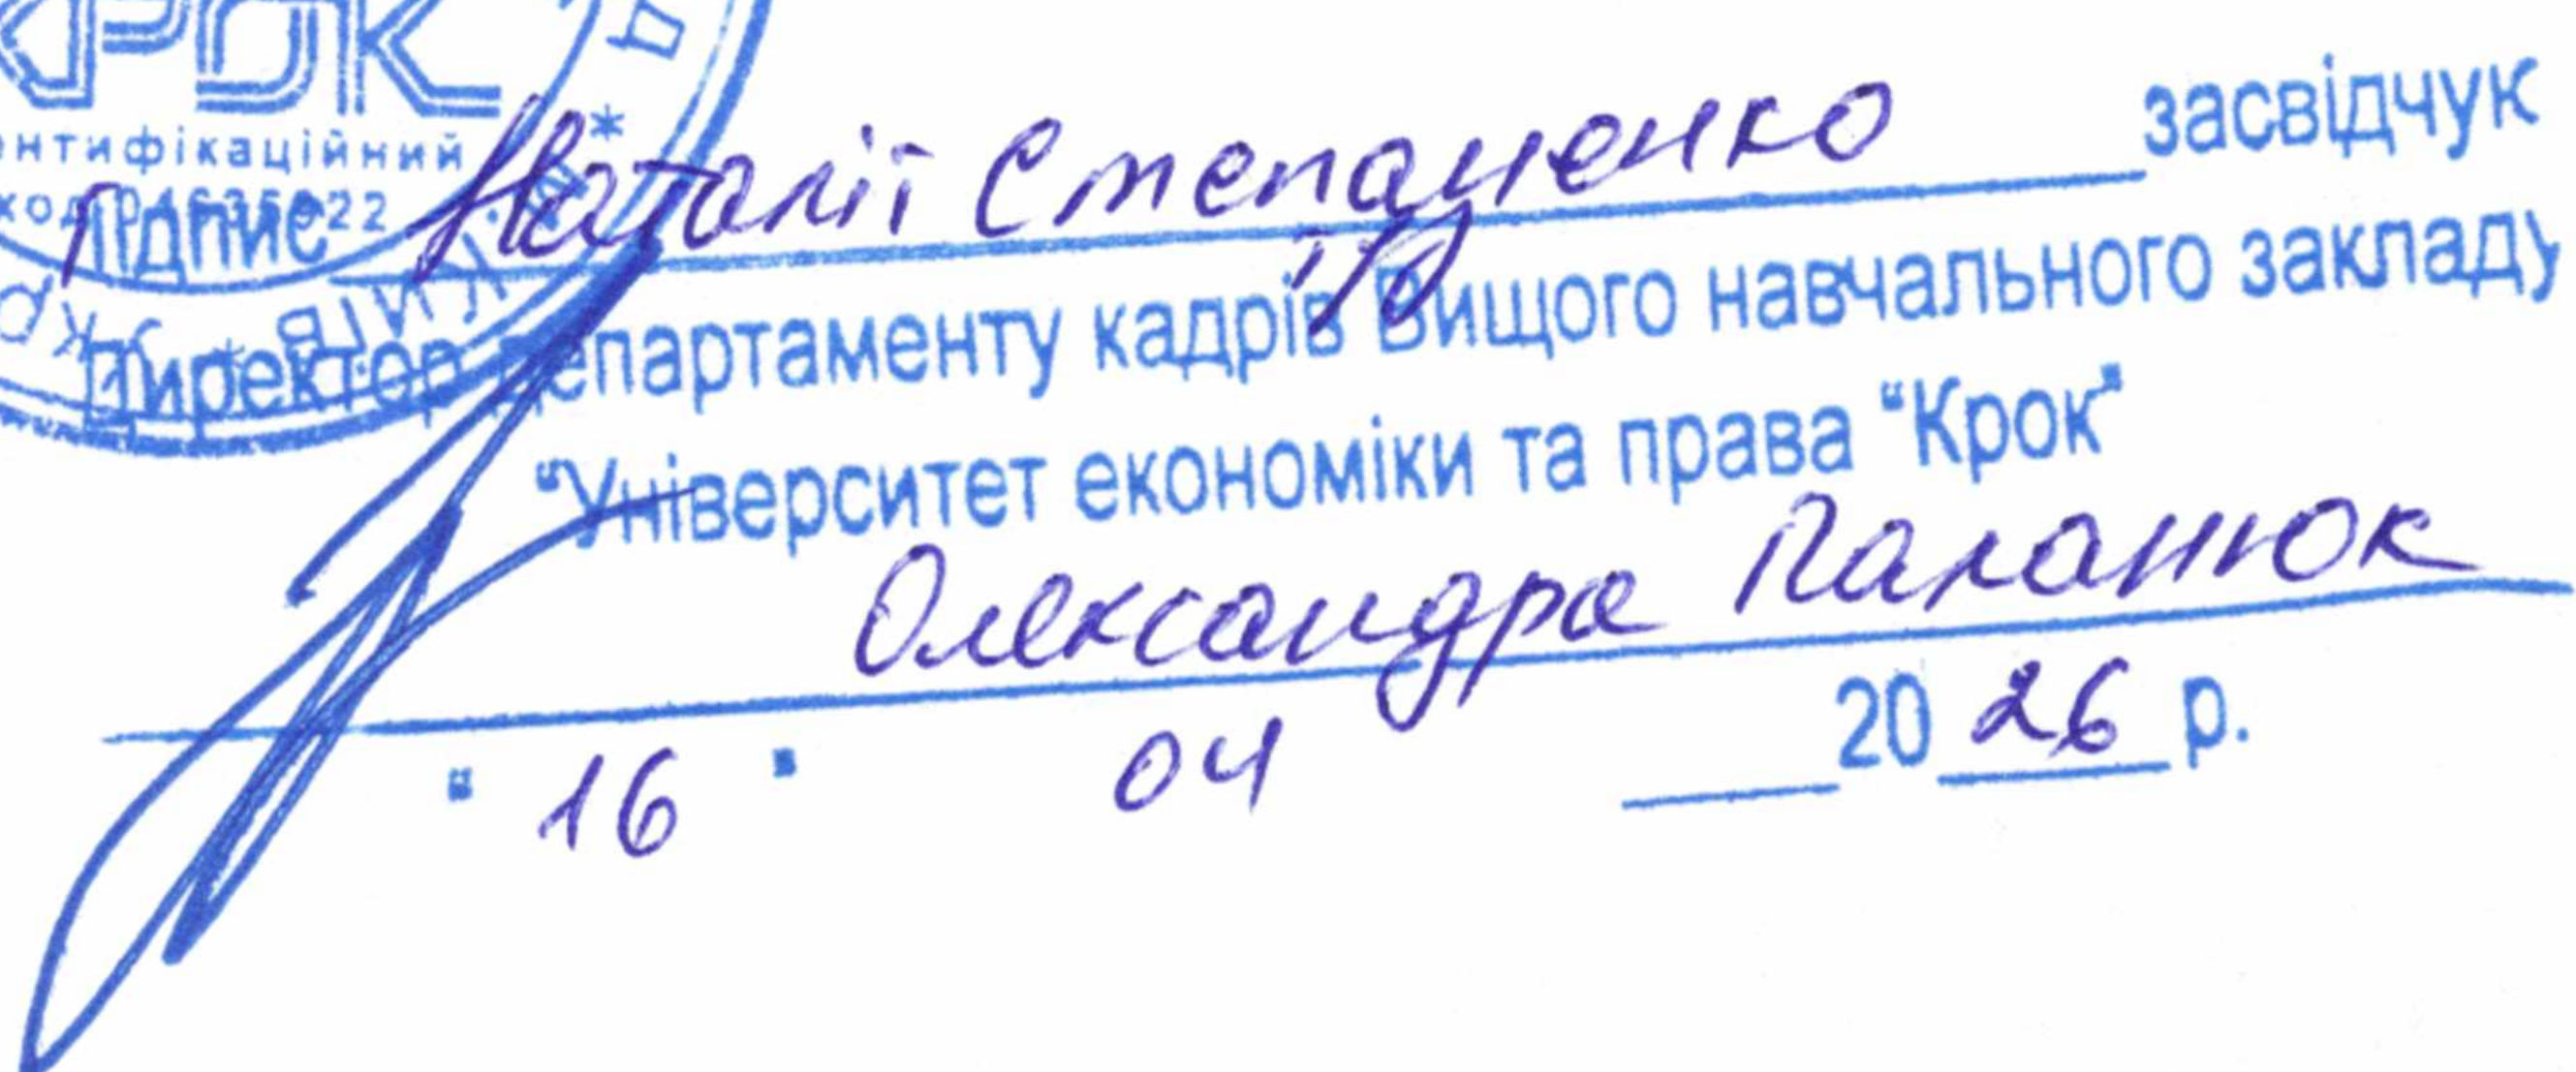 КРОК
нтифікаційний
код 04635922
Підпис Наталії Степаненко засвідчую
Директор департаменту кадрів Вищого навчального закладу
"Університет економіки та права "Крок"
Олександра Паланюк
"16" 04 2026 р.